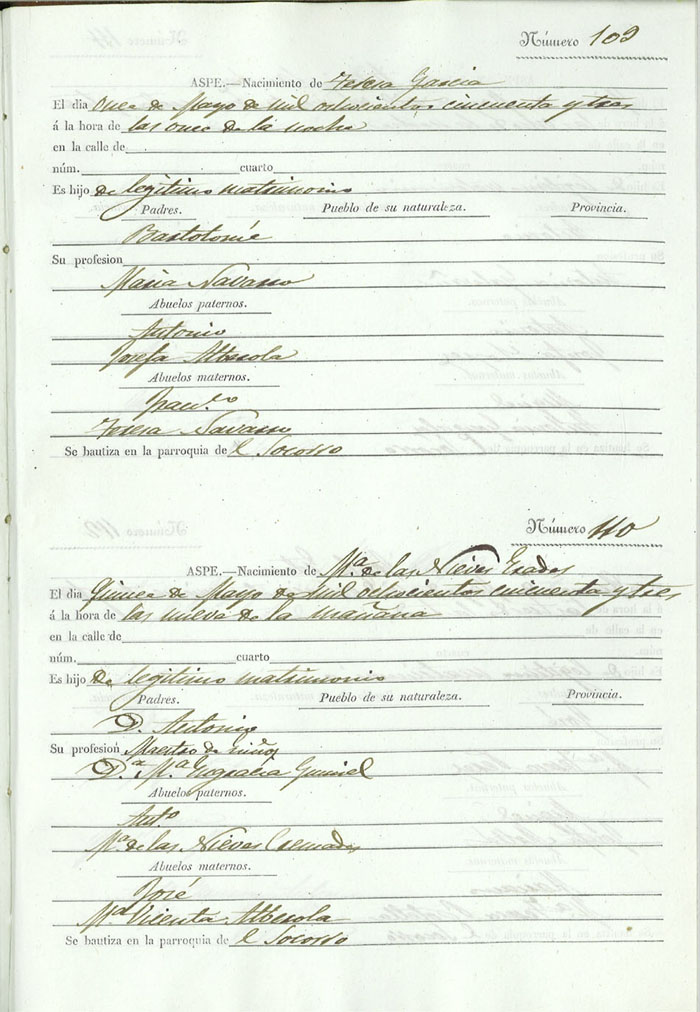 Número 109
ASPE.—Nacimiento de Teresa Garcia
El dia once de Mayo de mil ochocientos cincuenta y tres
á la hora de las once de la noche
en la calle de
núm. cuarto
Es hijo de legitimo matrimonio
Padres. Pueblo de su naturaleza. Provincia.
Bartolomé
Su profesion
Maria Navarro
Abuelos paternos.
Antonio
Josefa Alberola
Abuelos maternos.
Fran.co
Teresa Navarro
Se bautiza en la parroquia de l Socorro
Número 110
ASPE.—Nacimiento de M.a de las Nieves
El dia Quince de Mayo de mil ochocientos cincuenta y tres
á la hora de las nueve de la mañana
en la calle de
núm. cuarto
Es hijo de legitimo matrimonio
Padres. Pueblo de su naturaleza. Provincia.
D. Antonio
Su profesion Maestro de niños
D.a M.a
Abuelos paternos.
Ant.o
M.a de las Nieves Cremades
Abuelos maternos.
José
M.a Vicenta Alberola
Se bautiza en la parroquia de l Socorro